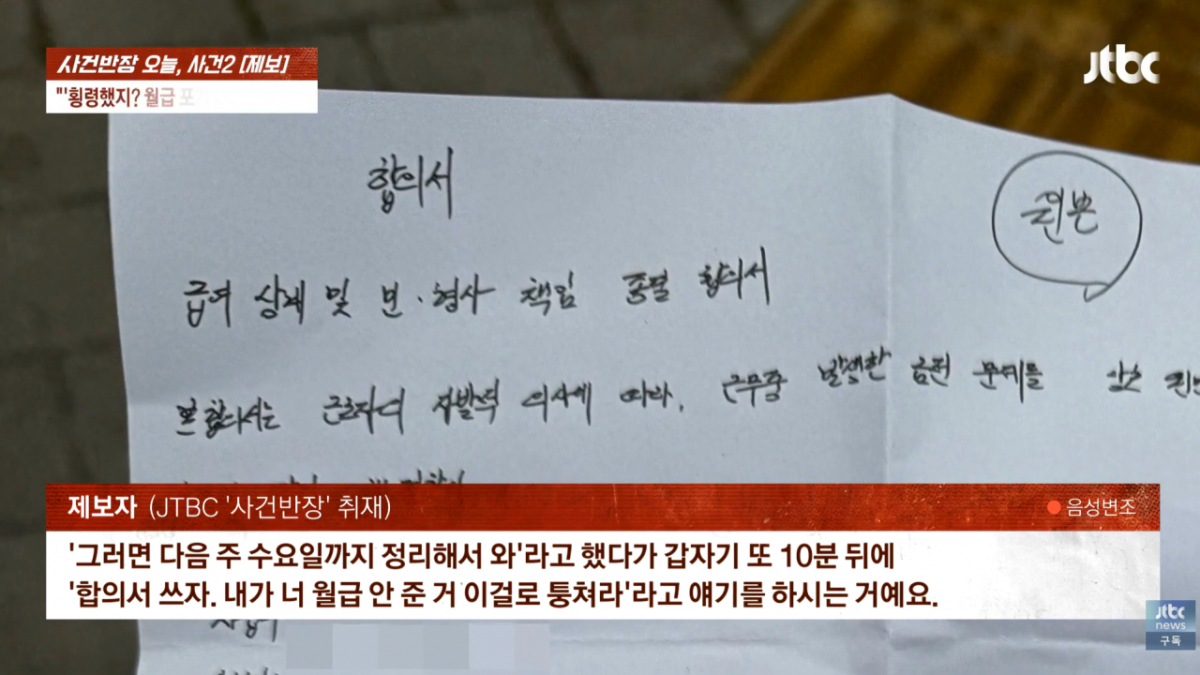 사건반장 오늘, 사건2 [제보]
"'횡령했지? 월급 포기
jtbc
합의서
원본
급여 상계 및 민·형사 책임 종결 합의서
본 합의서는 근로자의 자발적 의사에 따라, 근무중 발생한 금전 문제를 상호
제보자 (JTBC '사건반장' 취재)
음성변조
'그러면 다음 주 수요일까지 정리해서 와'라고 했다가 갑자기 또 10분 뒤에
'합의서 쓰자. 내가 너 월급 안 준 거 이걸로 퉁쳐라'라고 얘기를 하시는 거예요.
jtbc
news
구독